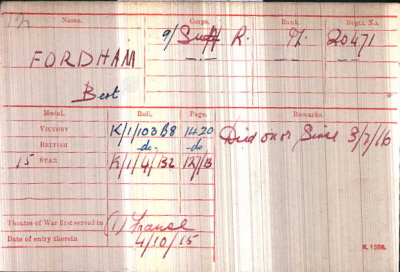 Name. Corps. Rank Regtl. No.
FORDHAM 9/Suff R. Pte. 20471
Bert
Medal. Roll. Page. Remarks.
VICTORY K/1/103 B8 1420 Died on or Since 3/7/16
BRITISH -do- -do-
15 STAR K/1/4/132 127/13
Theatre of War first served in (1) France
Date of entry therein 4/10/15
K. 1380.